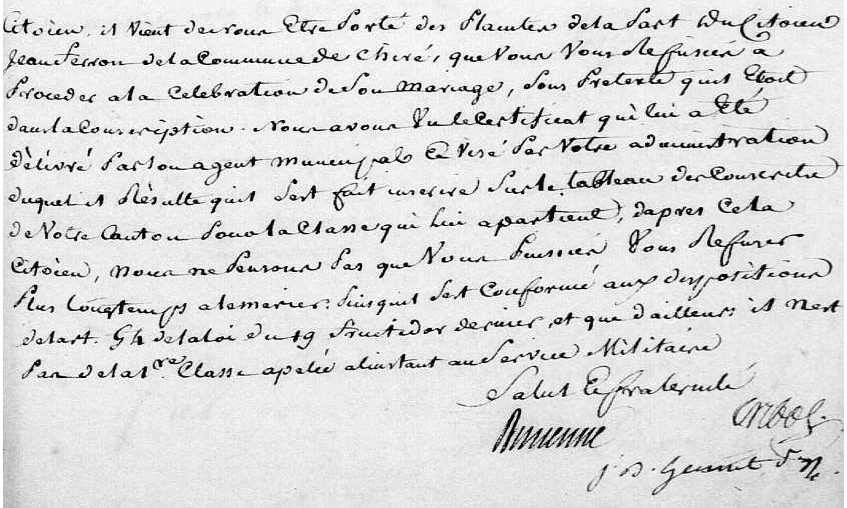 Citoyen, il vient de nous Etre Porté des Plaintes de la Part du Citoien
Jean Ferron de la Commune de Chiré, que Vous Vous Refusiez a
Proceder a la Celebration de Son Mariage, Sous Pretexte quil Etoit
dans la Conscription. Nous avons Vu le Certificat qui lui a Eté
délivré Par son agent municipal Et Visé Par Votre administration
duquel il Résulte quil Sest fait inscrire Sur le tableau des Conscrits
de Votre Canton Pour la Classe qui lui apartient, dapres Cela
Citoien, Nous ne Pensons Pas que Vous Puissiez Vous Refuser
Plus longtemps a le marier, Puisquil Sest Conformé aux dispositions
de lart. 54 de la loi du 19 fructidor dernier, et que d'ailleurs il Nest
Pas de la 1re Classe apelée alinstant au Service Militaire
Salut Et fraternité